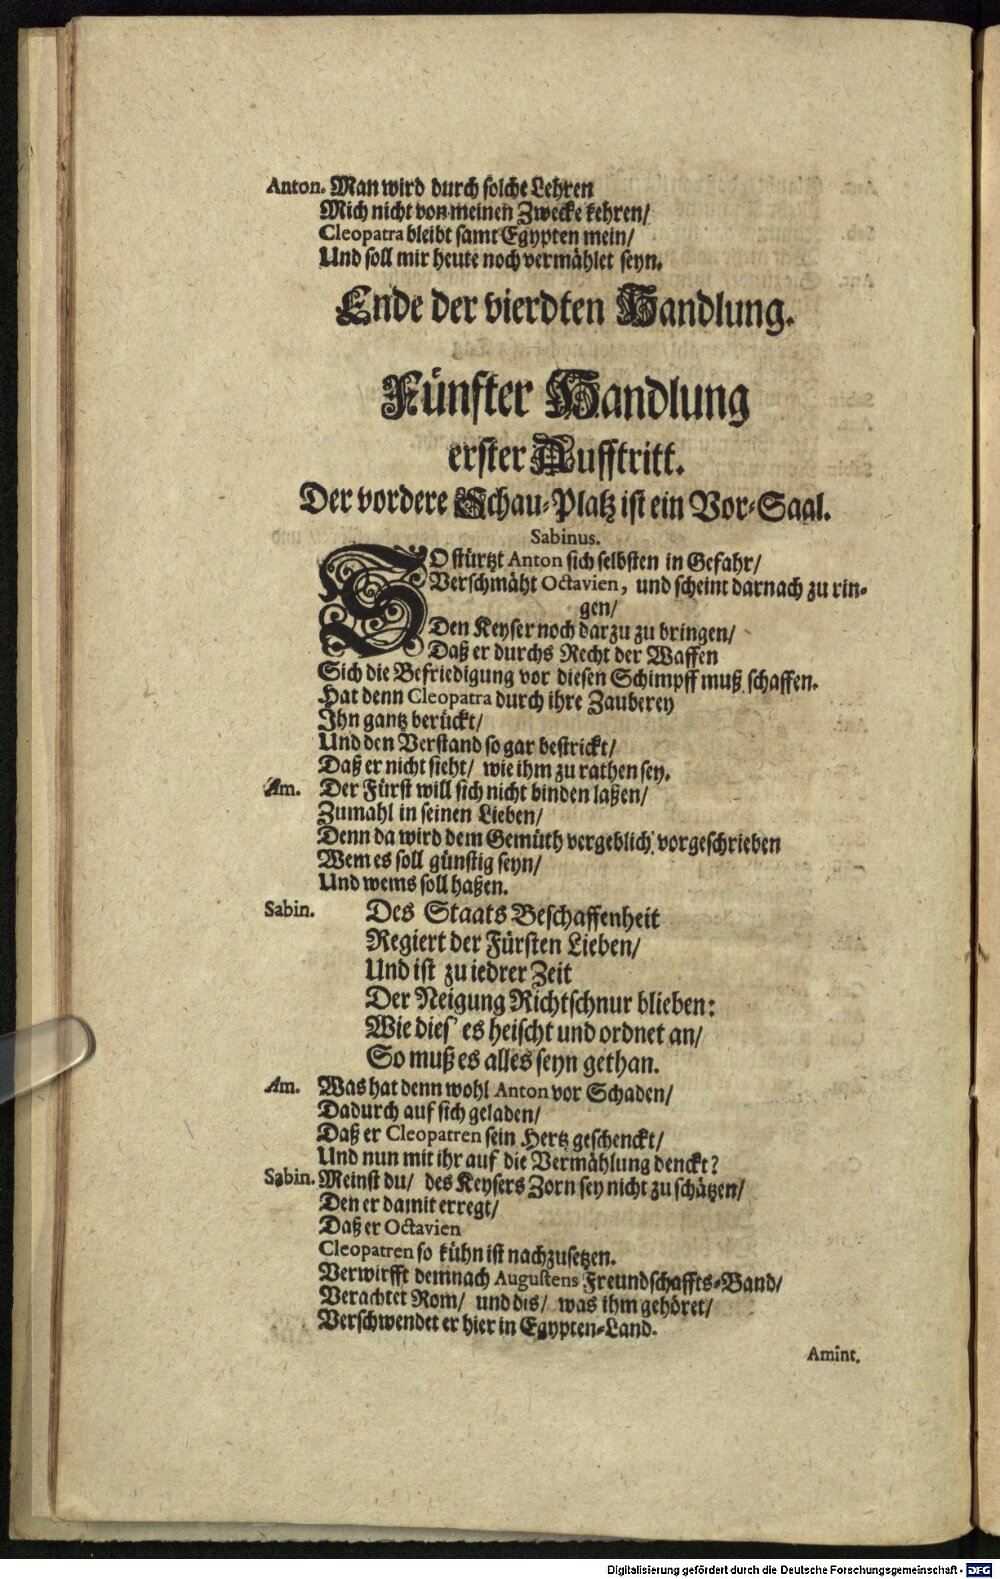 Anton. Man wird durch solche Lehren
Mich nicht von meinen Zwecke kehren/
Cleopatra bleibt samt Egypten mein/
Und soll mir heute noch vermählet seyn.
Ende der vierdten Handlung.
Fünfter Handlung
erster Aufftritt.
Der vordere Schau-Platz ist ein Vor-Saal.
Sabinus.
SO stürtzt Anton sich selbsten in Gefahr/
Verschmäht Octavien, und scheint darnach zu rin-
gen/
Den Keyser noch darzu zu bringen/
Daß er durchs Recht der Waffen
Sich die Befriedigung vor diesen Schimpff muß schaffen.
Hat denn Cleopatra durch ihre Zauberey
Ihn gantz berückt/
Und den Verstand so gar bestrickt/
Daß er nicht sieht/ wie ihm zu rathen sey.
Am. Der Fürst will sich nicht binden laßen/
Zumahl in seinen Lieben/
Denn da wird dem Gemüth vergeblich vorgeschrieben
Wem es soll günstig seyn/
Und wems soll haßen.
Sabin. Des Staats Beschaffenheit
Regiert der Fürsten Lieben/
Und ist zu iedrer Zeit
Der Neigung Richtschnur blieben:
Wie dies' es heischt und ordnet an/
So muß es alles seyn gethan.
Am. Was hat denn wohl Anton vor Schaden/
Dadurch auf sich geladen/
Daß er Cleopatren sein Hertz geschenckt/
Und nun mit ihr auf die Vermählung denckt?
Sabin. Meinst du/ des Keysers Zorn sey nicht zu schätzen/
Den er damit erregt/
Daß er Octavien
Cleopatren so kühn ist nachzusetzen.
Verwirfft demnach Augustens Freundschaffts-Band/
Verachtet Rom/ und dis/ was ihm gehöret/
Verschwendet er hier in Egypten-Land.
Amint.
Digitalisierung gefördert durch die Deutsche Forschungsgemeinschaft - DFG